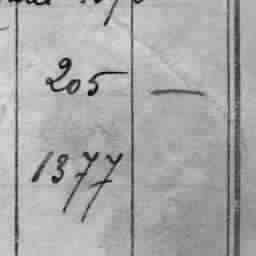 205 —
1377